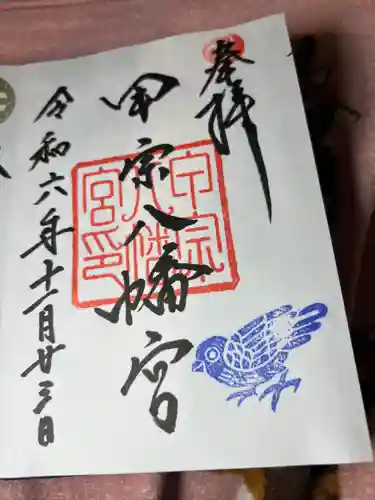 奉拝
甲宗八幡宮
令和六年十一月廿三日
甲宗
八幡
宮印